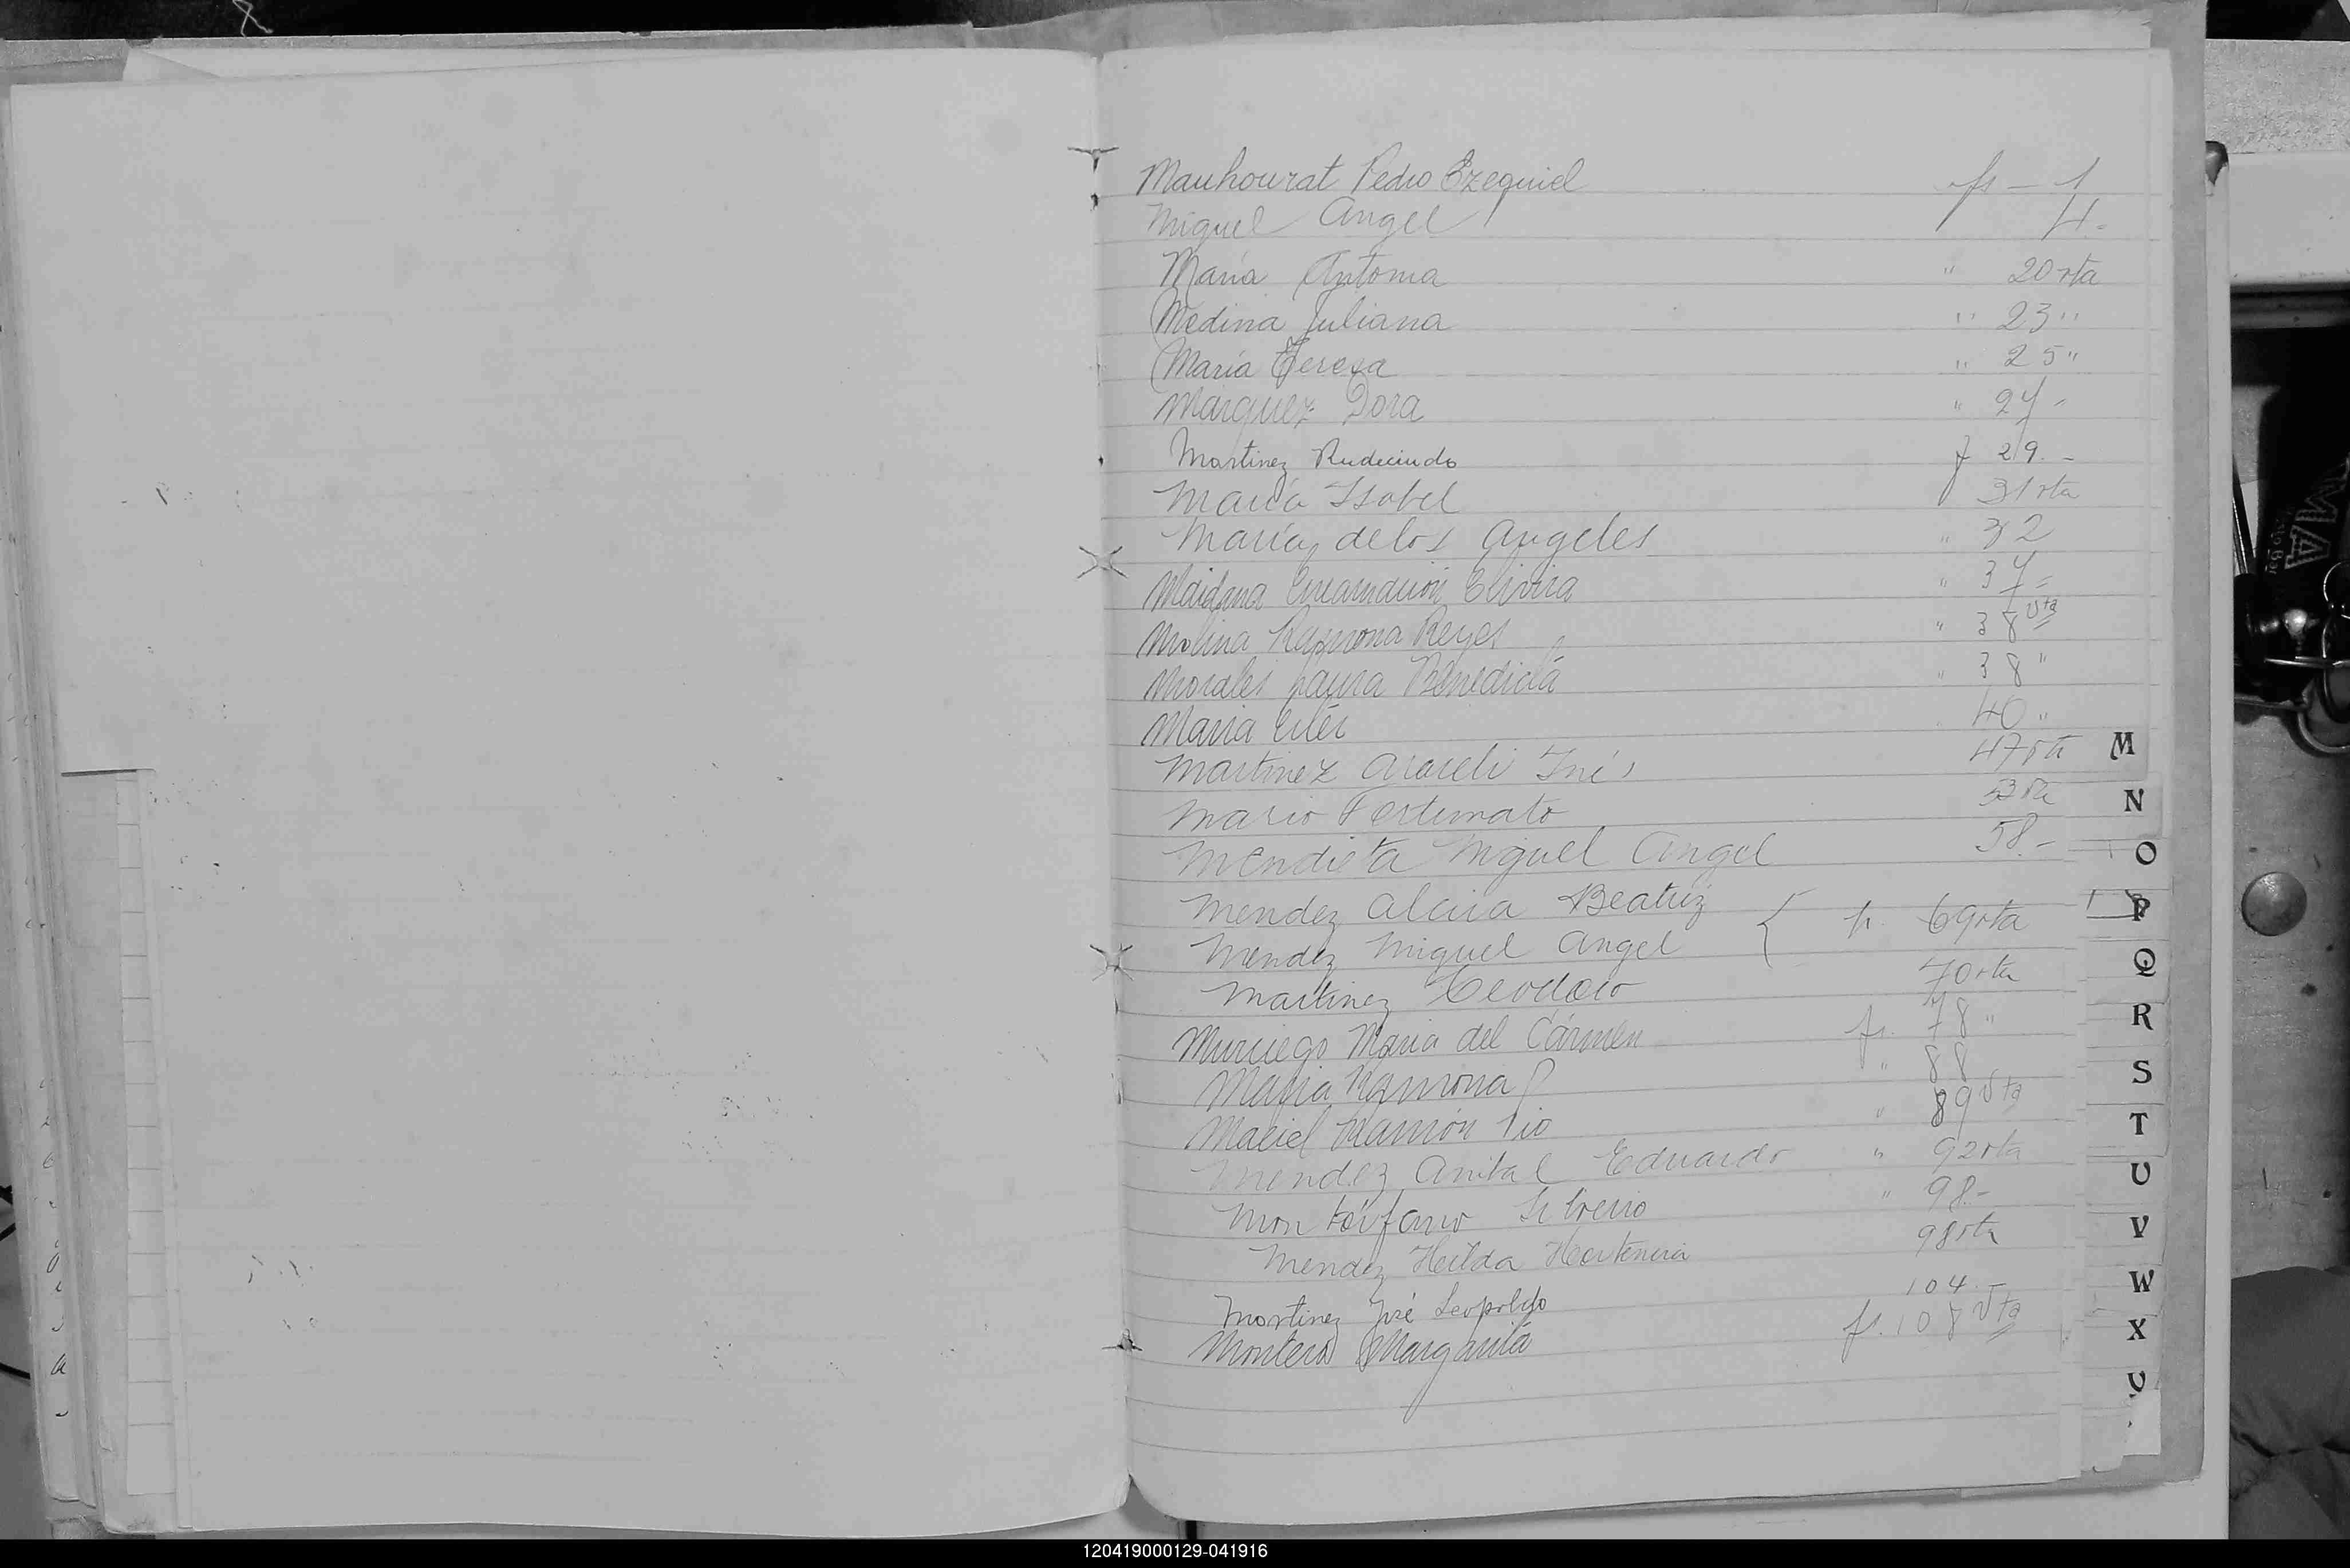 Mauhourat Pedro Ezequiel fs - 1
Miguel Angel 4.=
María Antonia " 20 vta
Medina Juliana " 23 "
María Teresa " 25 "
Marquez Dora " 27 -
Martinez Rudecindo f 29. -
María Isabel 31 vta
María de los Angeles " 32
Maidana Encarnación Elvira " 37 =
Molina Ramona Reyes " 38 vta
Morales Laura Benedicta " 38 "
María 40 "
Martinez Araceli Inés 47 vta
Mario Fortunato 53 vta
Mendieta Miguel Angel 58. -
Mendez Alcira Beatriz
Mendez Miguel Angel { f. 69 vta
Martinez Teodoro 70 vta
Murciego Maria del Cármen fs. 78 "
Maria Ramona " 88
Maciel Ramón Pio " 89 vta
Mendez Anibal Eduardo " 92 vta
Montórfano " 98 -
Mendez Hilda Hortencia 98 vta
Martinez José Leopoldo 104.
Montero Margarita fs. 108 vta
M
N
O
P
Q
R
S
T
U
V
W
X
120419000129-041916